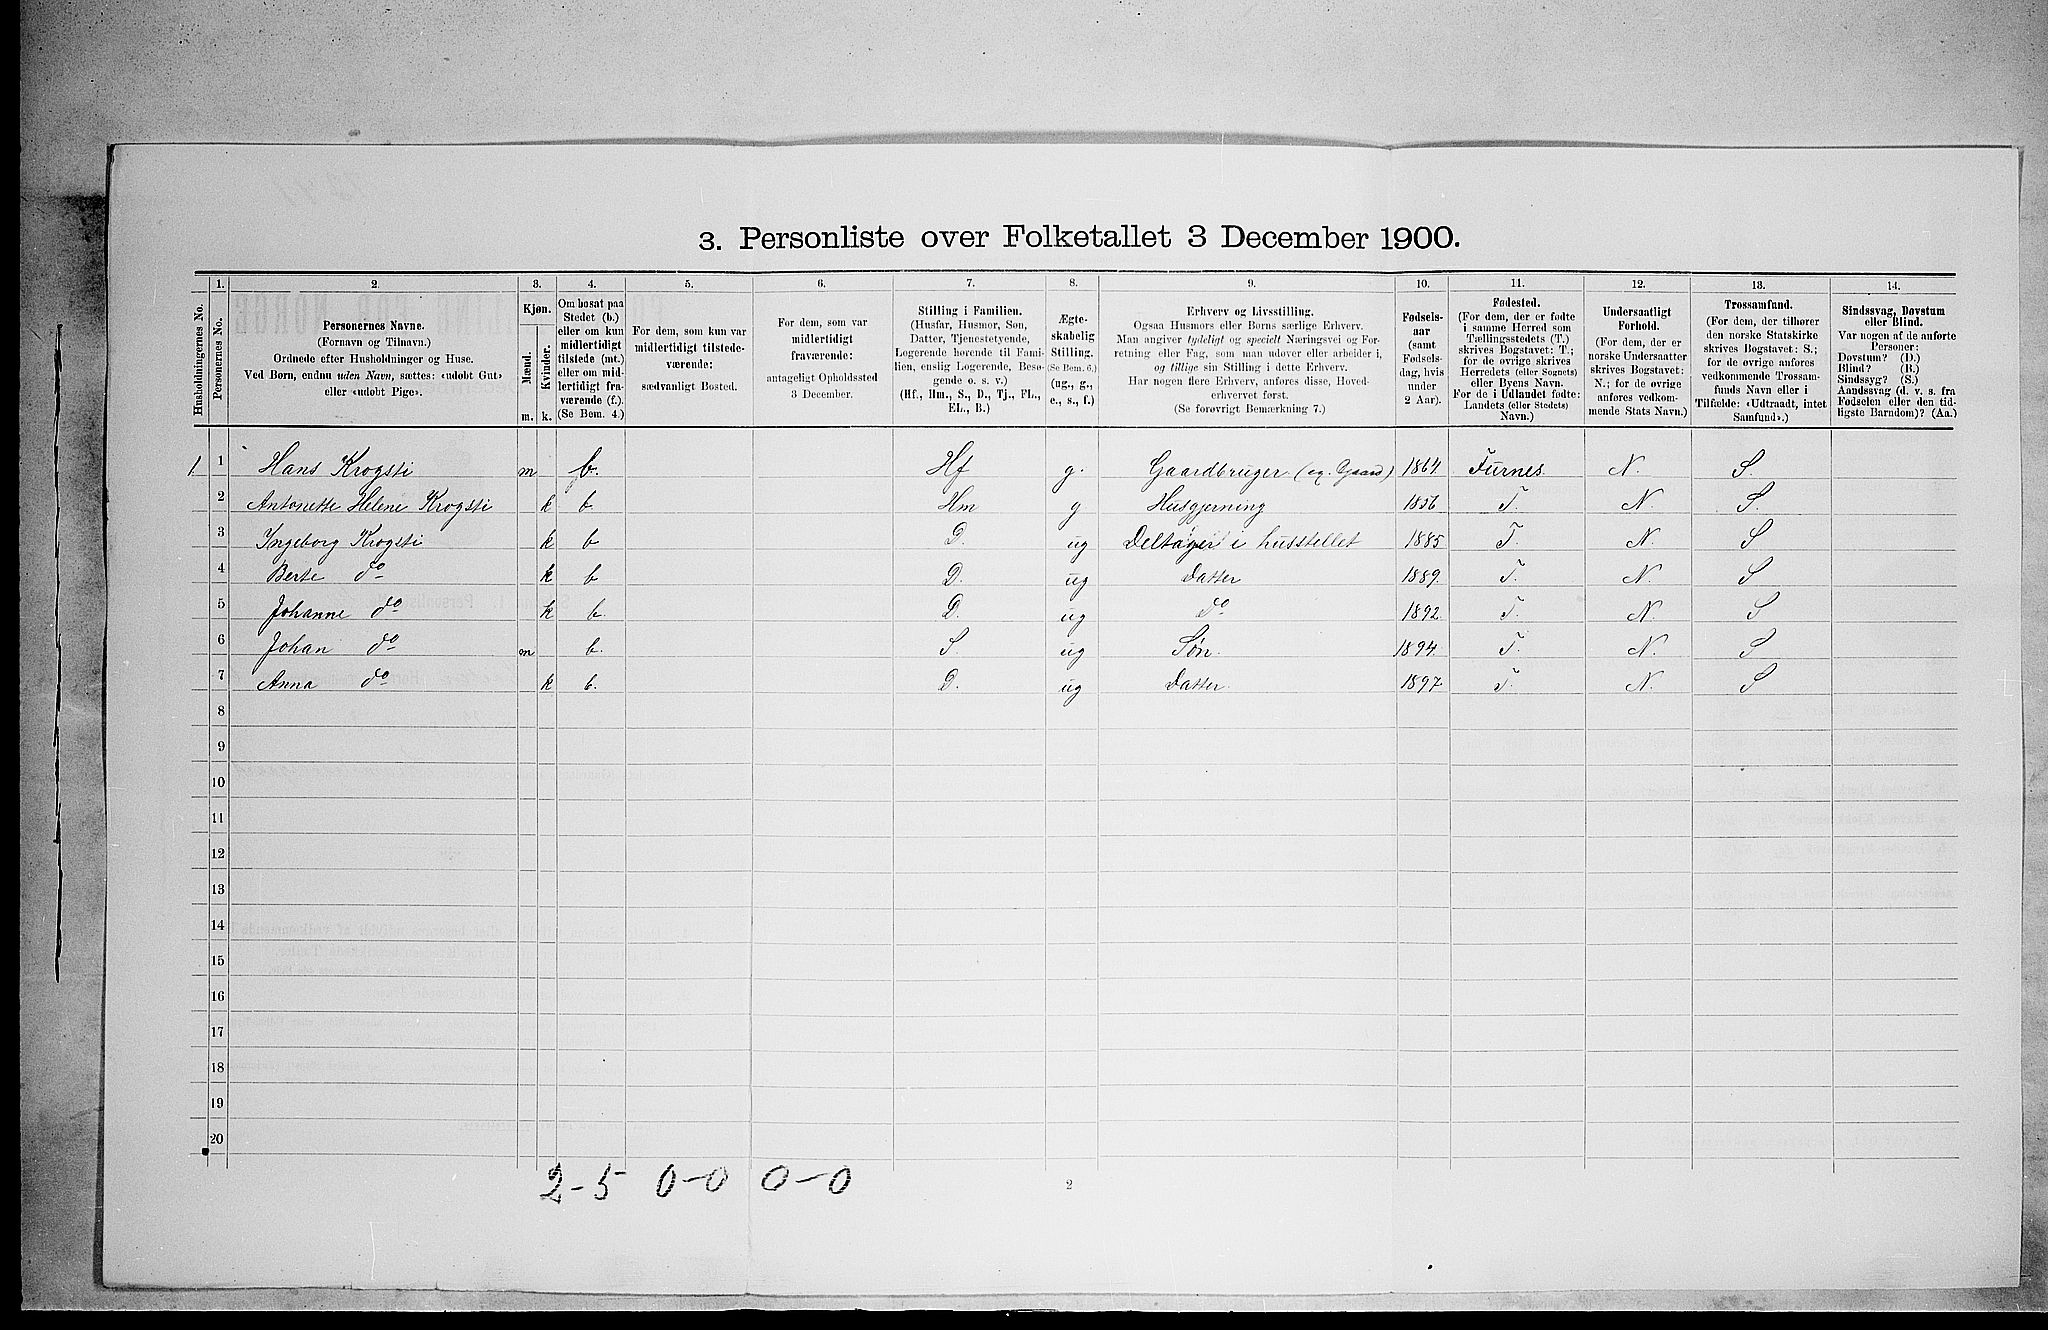 3. Personliste over Folketallet 3 December 1900.
1. 2. 3. 4. 5. 6. 7. 8. 9. 10. 11. 12. 13. 14.
Husholdningernes No.
Personernes No.
Personernes Navne.
(Fornavn og Tilnavn.)
Ordnede efter Husholdninger og Huse.
Ved Børn, endnu uden Navn, sættes: «udøbt Gut»
eller «udøbt Pige».
Kjøn.
Mænd.
Kvinder.
m. k.
Om bosat paa
Stedet (b.)
eller om kun
midlertidigt
tilstede (mt.)
eller om mid-
lertidigt fra-
værende (f.).
(Se Bem. 4.)
For dem, som kun var
midlertidigt tilstede-
værende:
sædvanligt Bosted.
For dem, som var
midlertidigt
fraværende:
antageligt Opholdssted
3 December.
Stilling i Familien.
(Husfar, Husmor, Søn,
Datter, Tjenestetyende,
Logerende hørende til Fami-
lien, enslig Logerende, Besø-
gende o. s. v.)
(Hf., Hm., S., D., Tj., FL.,
EL., B.)
Ægte-
skabelig
Stilling.
(Se Bem. 6.)
(ug., g.,
e., s., f.)
Erhverv og Livsstilling.
Ogsaa Husmors eller Børns særlige Erhverv.
Man angiver tydeligt og specielt Næringsvei og For-
retning eller Fag, som man udøver eller arbeider i,
og tillige sin Stilling i dette Erhverv.
Har nogen flere Erhverv, anføres disse, Hoved-
erhvervet først.
(Se forøvrigt Bemærkning 7.)
Fødsels-
aar
(samt
Fødsels-
dag, hvis
under
2 Aar).
Fødested.
(For dem, der er fødte
i samme Herred som
Tællingsstedets (T.)
skrives Bogstavet: T.;
for de øvrige skrives
Herredets (eller Sognets)
eller Byens Navn.
For de i Udlandet fødte:
Landets (eller Stedets)
Navn.)
Undersaatligt
Forhold.
(For dem, der er
norske Undersaatter
skrives Bogstavet:
N.; for de øvrige
anføres vedkom-
mende Stats Navn.)
Trossamfund.
(For dem, der tilhører
den norske Statskirke
skrives Bogstavet: S.;
for de øvrige anføres
vedkommende Trossam-
funds Navn eller i
Tilfælde: «Udtraadt, intet
Samfund».)
Sindssvag, Døvstum
eller Blind.
Var nogen af de anførte
Personer:
Døvstum? (D.)
Blind? (B.)
Sindssyg? (S.)
Aandssvag (d. v. s. fra
Fødselen eller den tid-
ligste Barndom)? (Aa.)
1. 1 Hans Krogsti m b. Hf g. Gaardbruger (eg. Gaard) 1864 Furnes. N. S
2 Antonette Helene Krogsti k b Hm g Husgjerning 1856 T. N. S.
3 Ingeborg Krogsti k b D. ug Deltager i husstellet 1885 T. N. S
4 Berte do k b D. ug Datter 1889. T. N. S
5 Johanne do k b. D. ug do 1892. T. N. S
6 Johan do m b. S. ug Søn. 1894. T. N. S
7 Anna do k b. D. ug Datter. 1897. T. N. S
8
9
10
11
12
13
14
15
16
17
18
19
20
2-5 0-0 0-0
2